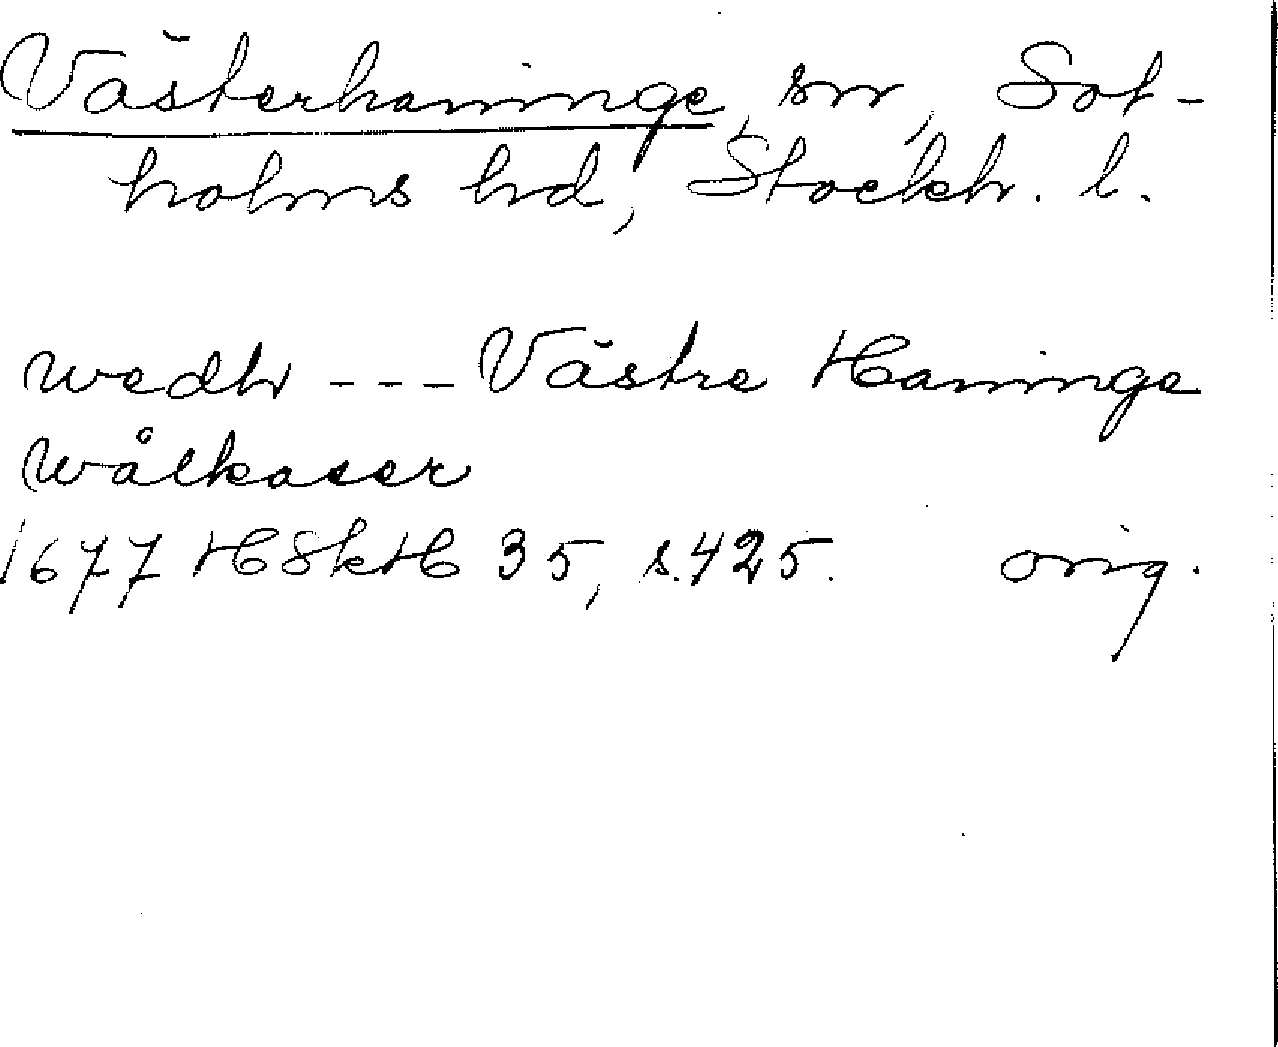 Västerhaninge, sn, Sot-
holms hd, Stockh. l.
wedh --- Västre Haninge
Wålkaser
1677 HSkH 35, s. 425. orig.